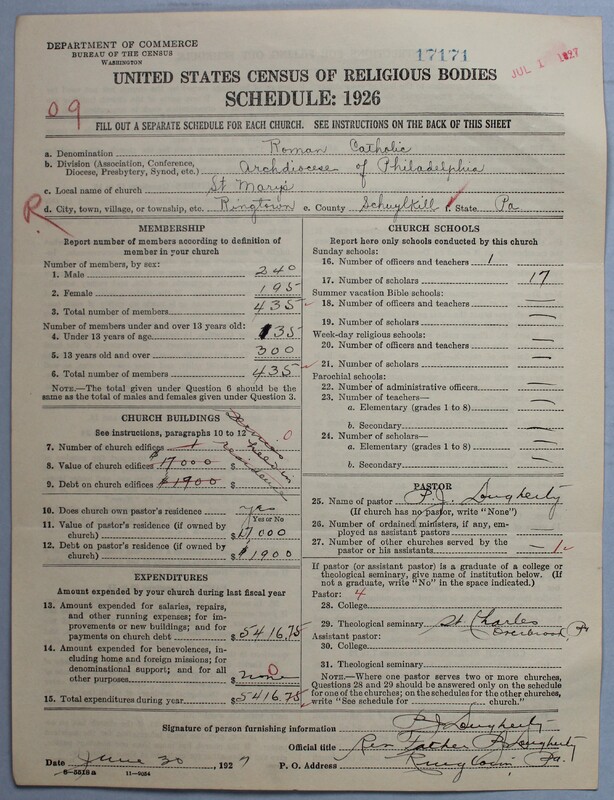 DEPARTMENT OF COMMERCE
BUREAU OF THE CENSUS
WASHINGTON
17171
JUL 1 1927
UNITED STATES CENSUS OF RELIGIOUS BODIES
SCHEDULE: 1926
09
FILL OUT A SEPARATE SCHEDULE FOR EACH CHURCH. SEE INSTRUCTIONS ON THE BACK OF THIS SHEET
a. Denomination Roman Catholic
b. Division (Association, Conference, Diocese, Presbytery, Synod, etc.) Archdiocese of Philadelphia
c. Local name of church St Marys
R d. City, town, village, or township, etc. Ringtown e. County Schuylkill f. State Pa
MEMBERSHIP
Report number of members according to definition of
member in your church
Number of members, by sex:
1. Male 240
2. Female 195
3. Total number of members 435
Number of members under and over 13 years old:
4. Under 13 years of age 135
5. 13 years old and over 300
6. Total number of members 435
NOTE.—The total given under Question 6 should be
the same as the total of males and females given under Question 3.
CHURCH BUILDINGS
See instructions, paragraphs 10 to 12
7. Number of church edifices 1 0
8. Value of church edifices $17000 $
9. Debt on church edifices $1900 $
residence
10. Does church own pastor's residence yes
Yes or No
11. Value of pastor's residence (if owned by
church) $17000
12. Debt on pastor's residence (if owned by
church) $1900
EXPENDITURES
Amount expended by your church during last fiscal year
13. Amount expended for salaries, repairs,
and other running expenses; for im-
provements or new buildings; and for
payments on church debt $5416.75
14. Amount expended for benevolences,
including home and foreign missions; for
denominational support; and for all
other purposes $none 0
15. Total expenditures during year $5416.75
CHURCH SCHOOLS
Report here only schools conducted by this church
Sunday schools:
16. Number of officers and teachers 1
17. Number of scholars 17
Summer vacation Bible schools:
18. Number of officers and teachers —
19. Number of scholars —
Week-day religious schools:
20. Number of officers and teachers —
21. Number of scholars —
Parochial schools:
22. Number of administrative officers —
23. Number of teachers—
a. Elementary (grades 1 to 8) —
b. Secondary —
24. Number of scholars—
a. Elementary (grades 1 to 8) —
b. Secondary —
PASTOR
25. Name of pastor P. J. Dougherty
(If church has no pastor, write "None")
26. Number of ordained ministers, if any, em-
ployed as assistant pastors —
27. Number of other churches served by the
pastor or his assistants — 1
If pastor (or assistant pastor) is a graduate of a college or
theological seminary, give name of institution below. (If
not a graduate, write "No" in the space indicated.)
Pastor: 4
28. College
29. Theological seminary St Charles
Overbrook, Pa
Assistant pastor:
30. College
31. Theological seminary
NOTE.—Where one pastor serves two or more churches,
Questions 28 and 29 should be answered only on the schedule
for one of the churches; on the schedules for the other churches,
write "See schedule for church."
Signature of person furnishing information P. J. Dougherty
Official title Rev Father P. J. Dougherty
Date June 30, 1927 P. O. Address Ringtown, Pa.
8-5518a 11-9054